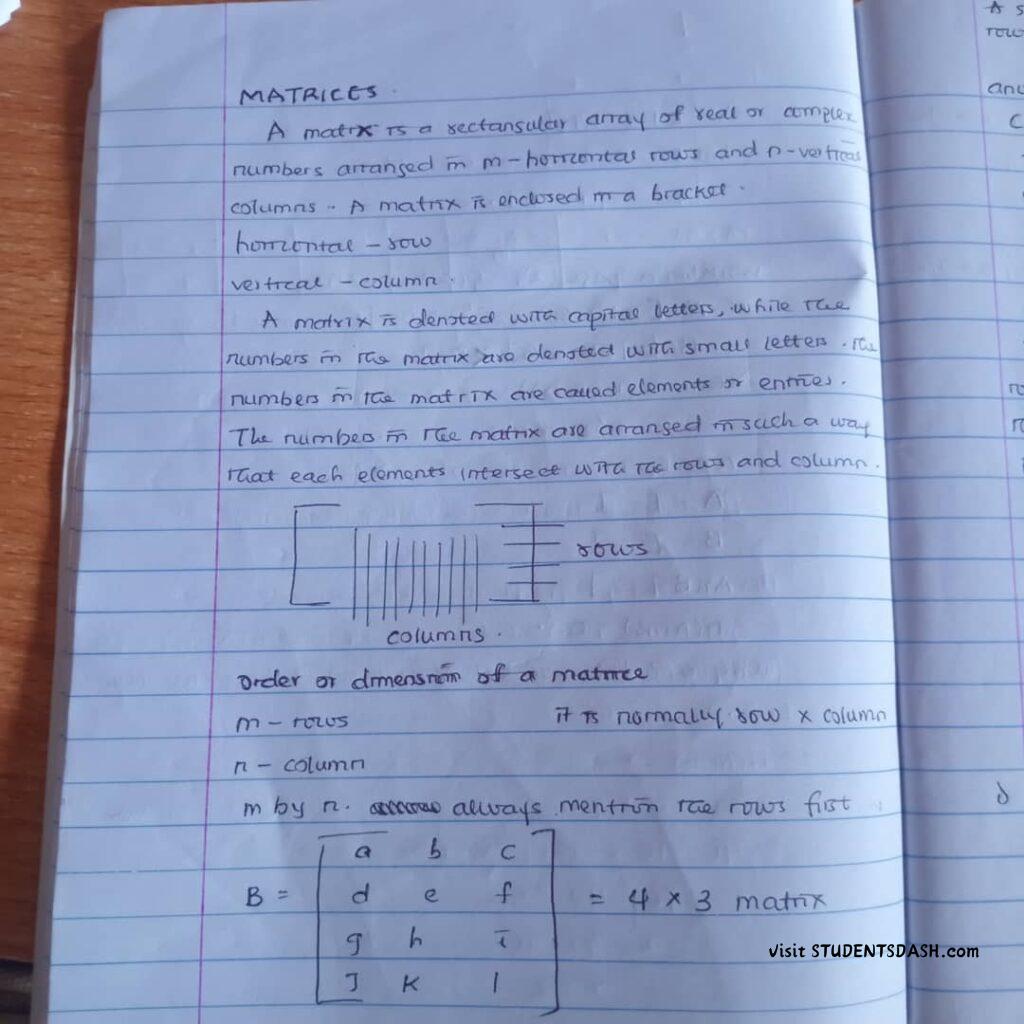 MATRICES.
A matrix is a rectangular array of real or complex
numbers arranged in m-horizontal rows and n-vertical
columns. A matrix is enclosed in a bracket.
horizontal - row
vertical - column.
A matrix is denoted with capital letters, while the
numbers in the matrix are denoted with small letters. The
numbers in the matrix are called elements or entries.
The numbers in the matrix are arranged in such a way
that each elements intersect with the rows and column.
rows
columns.
order or dimension of a matrice
m - rows it is normally row x column
n - column
m by n. always mention the rows first
a b c
B = d e f = 4 x 3 matrix
g h i
J K l
visit STUDENTSDASH.com